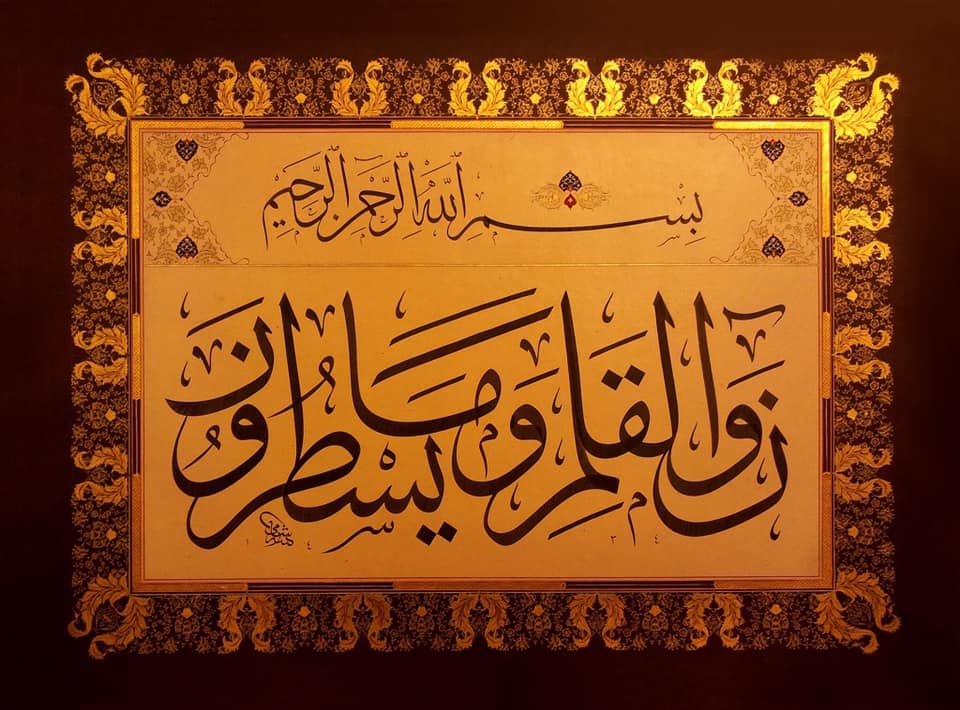 بِسْمِ اللّٰهِ الرَّحْمٰنِ الرَّحِيْمِ
نٓ وَالْقَلَمِ وَمَا يَسْطُرُوْنَ
١٤٣٤